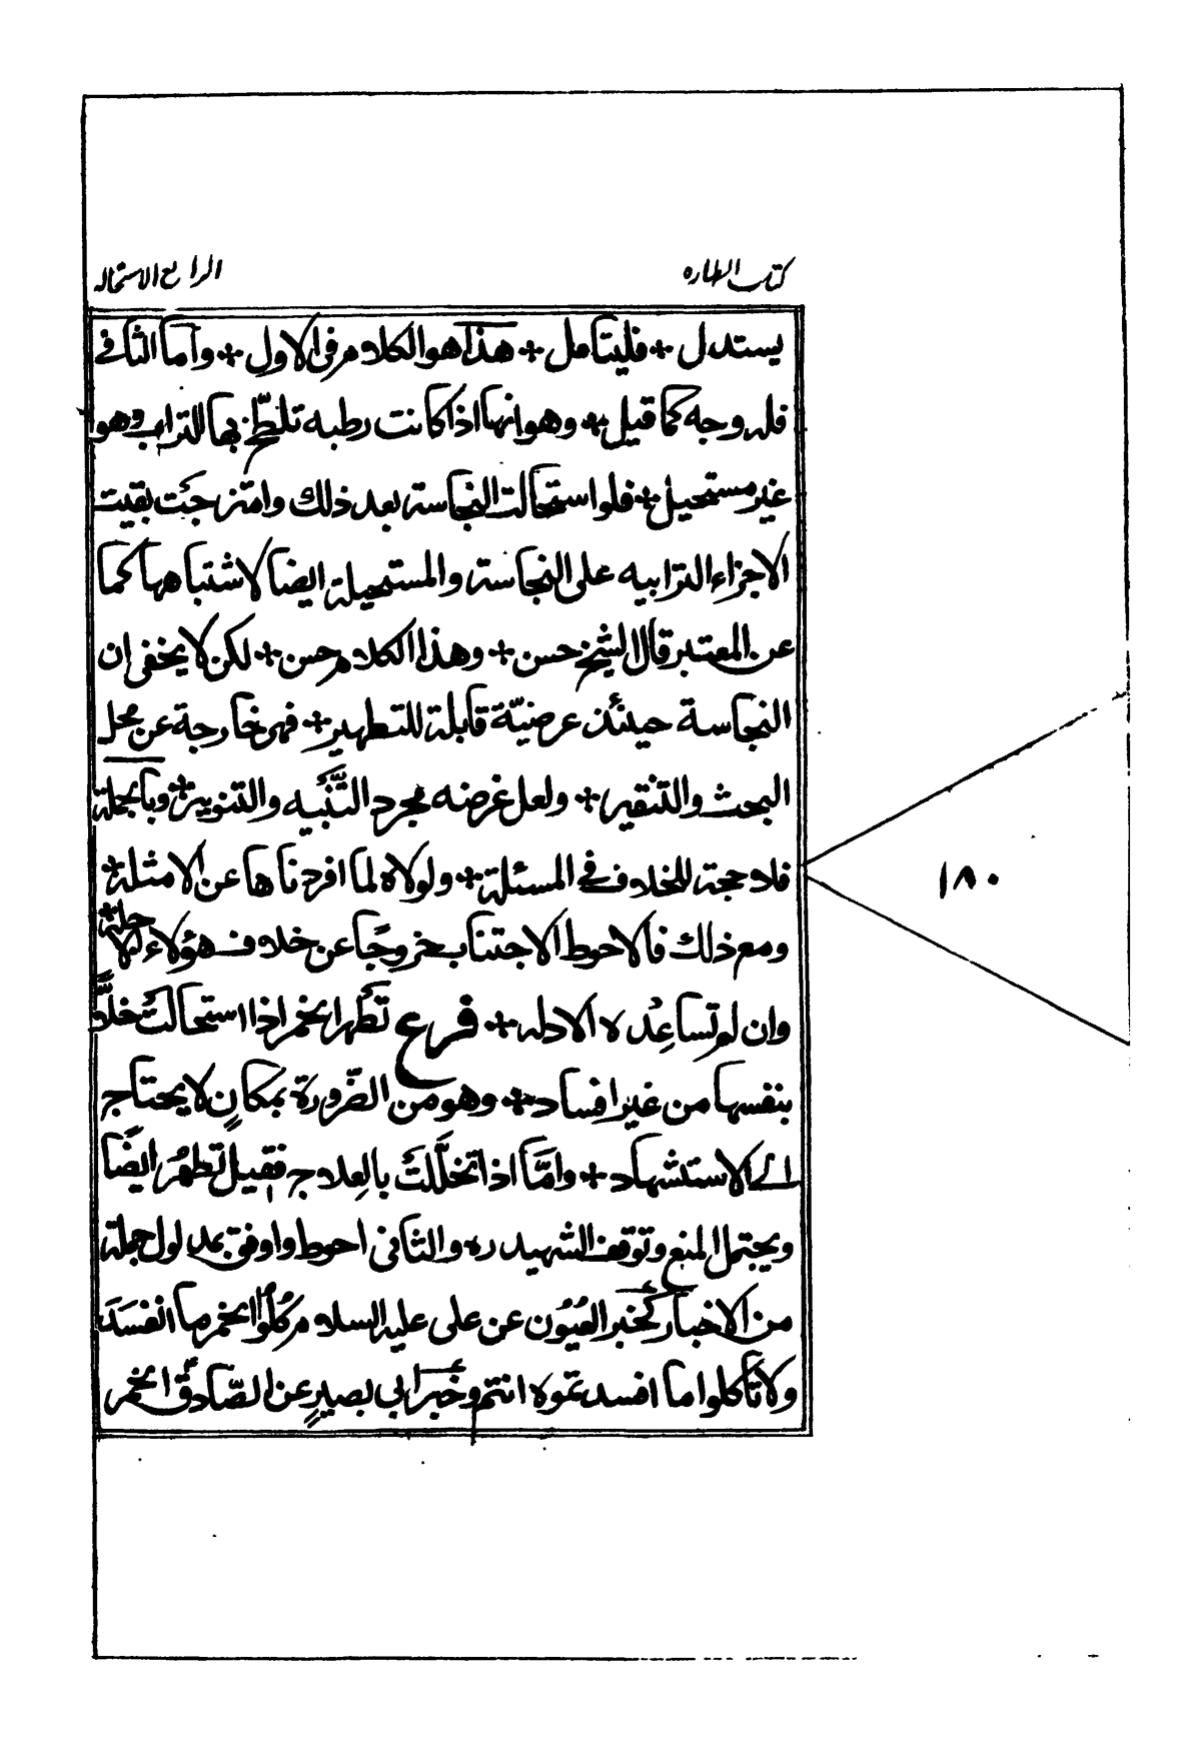 كتاب الطهاره
الرابع الاستحاله
يستدل + فليتامل + هذا هو الكلام في الاول + واما الثاني
فله وجه كما قيل + وهو انها اذا كانت رطبه تلطّخ بها التراب وهو
غير مستحيل + فلو استحالت النجاسة بعد ذلك وامتزجَت بقيت
الاجزاء الترابيه على النجاسة والمستحيلة ايضا لاشتباهها كما
عن المعتبر قال الشيخ حسن + وهذا الكلام حسن + لكن لا يخفى ان
النجاسة حينئذ عرضيّة قابلة للتطهير + فهي خارجة عن محل
البحث والتنقير + ولعل غرضه مجرد التَّنْبيه والتنوير + وبالجملة
فلا حجة للخلاف في المسئلة + ولولاه لما افردناها عن الامثلة +
ومع ذلك فالاحوط الاجتناب خروجًا عن خلاف هؤلاء الاجلة +
وان لم تساعِدْه الادله + فرع تَطْهر الخمر اذا استحالَتْ خلاًّ
بنفسها من غير افساد + وهو من الضّرورة بمكانٍ لا يحتاج
الى الاستشهاد + وامَّا اذا تخلَّلَتْ بالعِلاج فقيل تَطهُر ايضًا
ويحتمل المنع وتوقف الشهيد ره والثاني احوط واوفق بمدلول جملة
من الاخبار كخبر العُيُون عن على عليه السلام كُلُوْا الخمر ما انفسَدَ
ولا تَأكلوا ما افسدتموه انتم وخَبَر ابي بصيرٍ عن الصّادقؑ الخمر
١٨٠